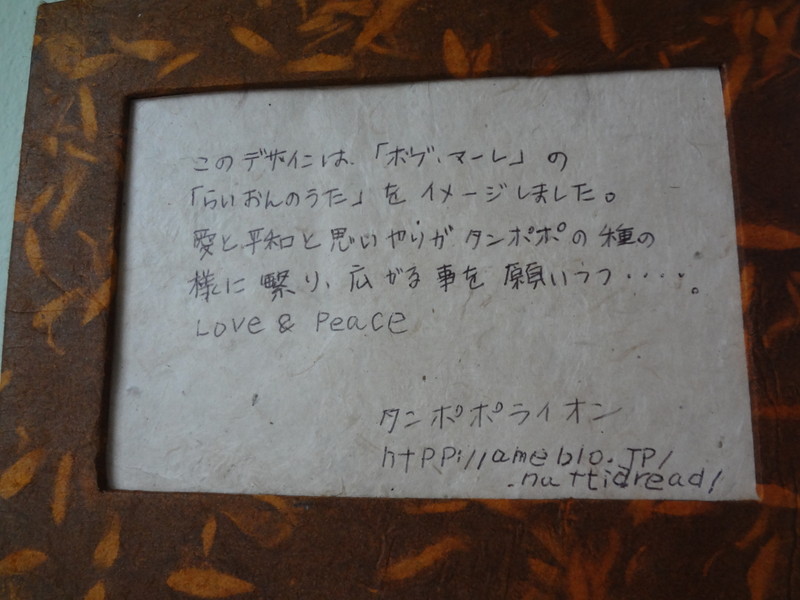 このデザインは、「ボブ・マーレ」の
「らいおんのうた」を イメージしました。
愛と平和と思いやりが タンポポの種の
様に 繋り、広がる事を 願いつつ・・・・。
Love & Peace
タンポポライオン
httpp://ameblo.JP/
nattidread/